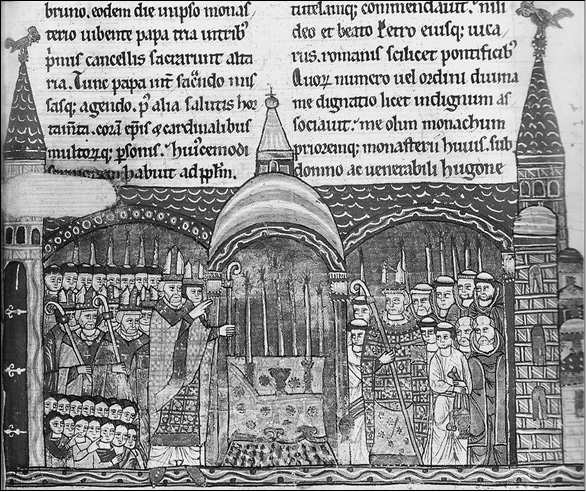 bruno. eodem die in ipso monas
terio iubente papa tria in tribꝰ
p̄mis cancellis sacrauerunt alta
ria. Tunc papa int̄ sac̄ndū mis
sasq; agendo. p̄ alia salutis hor
tam̄ta. corā ep̄is ⁊ cardinalibus
multorq; p̄sonis. huiꝰcemodi
habuit ad pp̄lm.
tutelamq; commendauit. nisi
deo et beato Petro eiusq; uica
rus. romanis scilicet pontificibꝰ
Quoꝝ numero uel ordini diuina
me dignatio licet indignum as
sociauit. me olim monachum
prioremq; monasterii huius. sub
domno ac uenerabili hugone